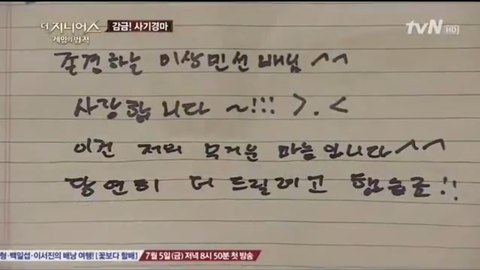 더 지니어스 감금! 사기경마 tvN HD
게임의 법칙
존경하는 이상민선배님 ^^
사랑합니다 ~!!! >.<
이건 저의 무거운 마음입니다^^
당연히 더 드릴려고 !!
형·백일섭·이서진의 배낭 여행! [꽃보다 할배] 7월 5일(금) 저녁 8시 50분 첫 방송